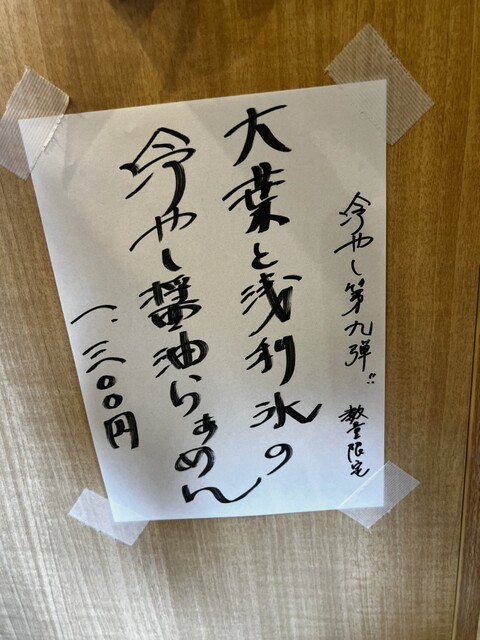 冷やし第九弾!!
数量限定
大葉と浅利氷の
冷やし醤油らぁめん
一、三〇〇円